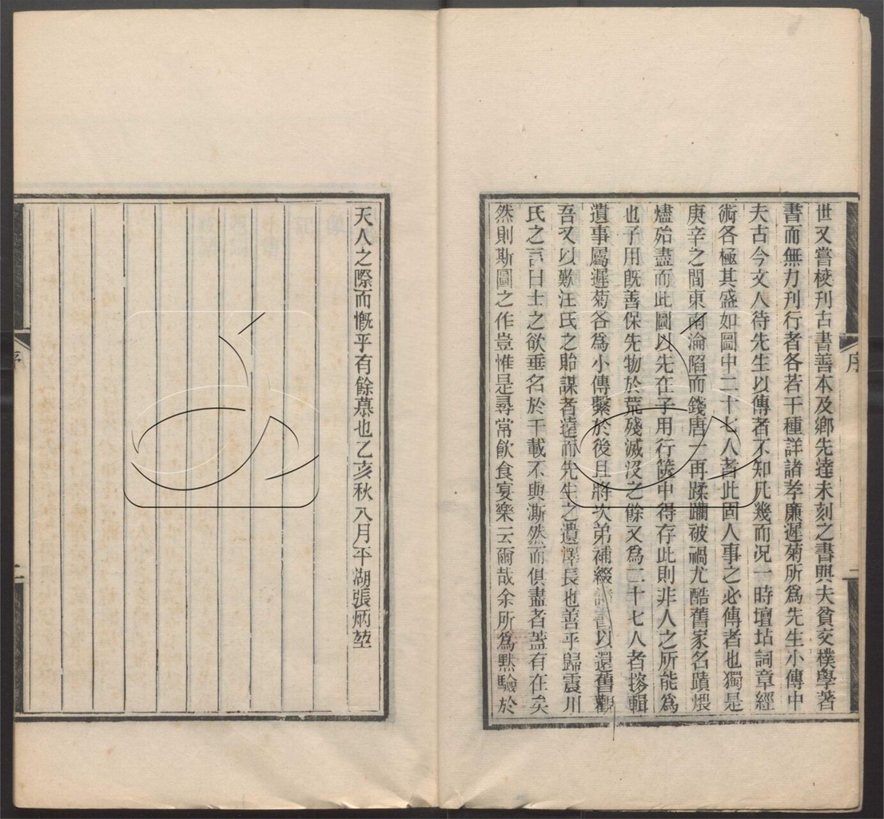 世又嘗校刊古書善本及鄉先達未刻之書與夫貧交樸學著
書而無力刊行者各若干種詳諸孝廉遲菊所爲先生小傳中
夫古今文人待先生以傳者不知凡幾而况一時壇坫詞章經
術各極其盛如圖中二十七人者此固人事之必傳者也獨是
庚辛之間東南淪陷而錢唐一再蹂躪被禍尤酷舊家名蹟煨
燼殆盡而此圖以先在子用行篋中得存此則非人之所能爲
也子用旣善保先物於荒殘滅沒之餘又爲二十七人者搜輯
遺事屬遲菊各爲小傳繫於後且將次弟補綴以還舊觀
吾又以歎汪氏之貽謀者遠而先生之遺澤長也善乎歸震川
氏之言曰士之欲垂名於千載不與澌然而俱盡者葢有在矣
然則斯圖之作豈惟是尋常飮食宴樂云爾哉余所爲默驗於
序
天人之際而慨乎有餘慕也乙亥秋八月平湖張炳堃